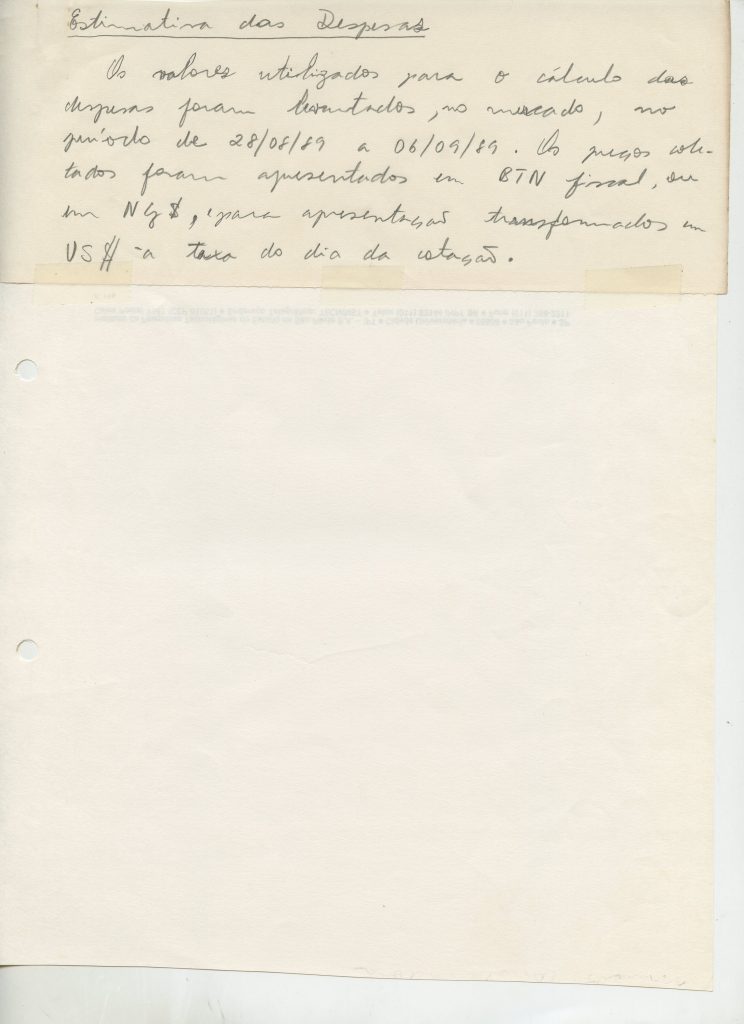 Estimativa das Despesas
Os valores utilizados para o cálculo das
despesas foram levantados, no mercado, no
período de 28/08/89 a 06/09/89. Os preços cole-
tados foram apresentados em BTN fiscal, ou
em NCz$, e para apresentação transformados em
US$ à taxa do dia da cotação.